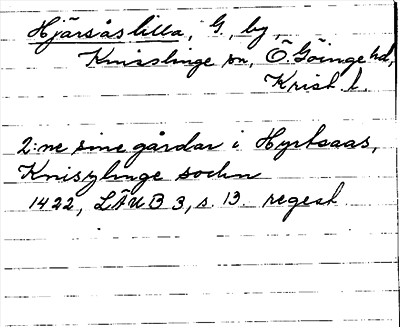 Hjärsåslilla, G., by,
Knislinge sn, Ö. Göinge hd,
Krist. l.
2:ne sine gårdar i Hyrtsaas,
Knislinge sochn
1422, LÄUB 3, s. 13. regest